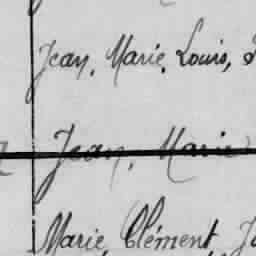 Jean, Marie, Louis,
Jean, Marie
Marie, Clément, Jo